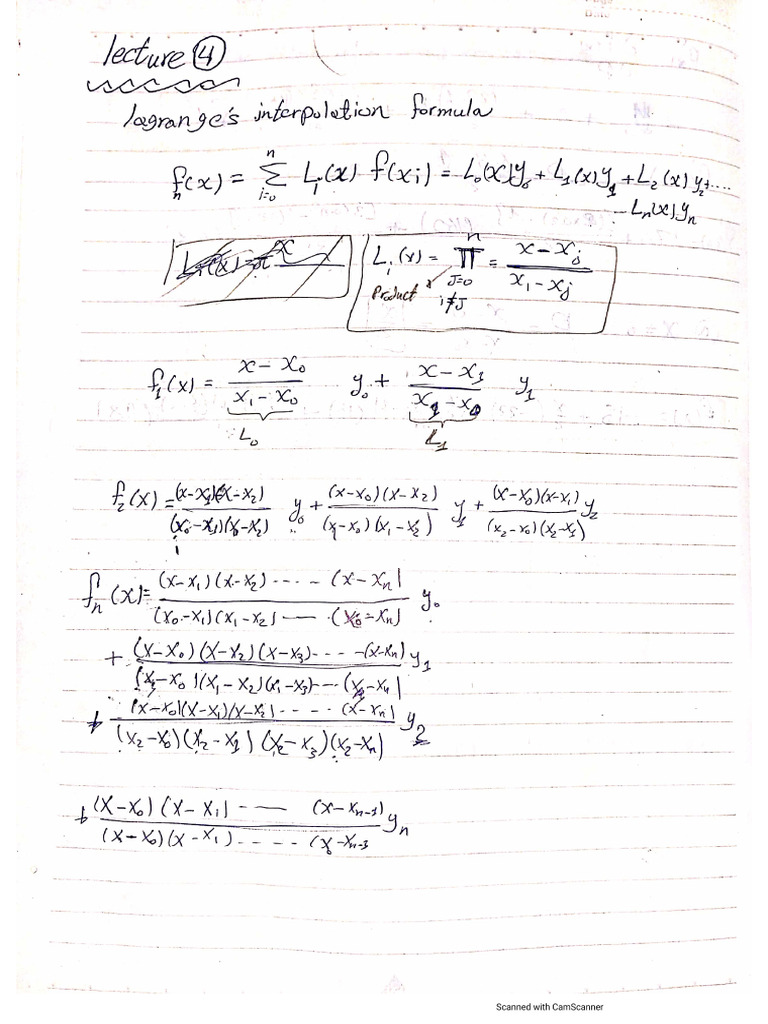 lecture 4
lagrange's interpolation formula
fₙ(x) = Σⁿᵢ₌₀ Lᵢ(x) f(xᵢ) = L₀(x)y₀ + L₁(x)y₁ + L₂(x)y₂ + ....
- Lₙ(x)yₙ
Lᵢ(x) = πⁿ J=0 i≠J = (x - xⱼ) / (xᵢ - xⱼ)
Product
f₁(x) = (x - x₀) / (x₁ - x₀) y₀ + (x - x₁) / (x₁ - x₀) y₁
L₀ L₁
f₂(x) = (x-x₁)(x-x₂) / (x₀-x₁)(x₀-x₂) y₀ + (x-x₀)(x-x₂) / (x₁-x₀)(x₁-x₂) y₁ + (x-x₀)(x-x₁) / (x₂-x₀)(x₂-x₁) y₂
fₙ(x) = (x-x₁)(x-x₂) ..... (x-xₙ) / (x₀-x₁)(x₁-x₂) ---- (x₀-xₙ) y₀
+ (x-x₀)(x-x₂)(x-x₃) ..... (x-xₙ) / (x₁-x₀)(x₁-x₂)(x₁-x₃) ---- (x₁-xₙ) y₁
+ (x-x₀)(x-x₁)(x-x₂) ..... (x-xₙ) / (x₂-x₀)(x₂-x₁)(x₂-x₃)(x₂-xₙ) y₂
+ (x-x₀)(x-x₁) ---- (x-xₙ₋₁) / (x-x₀)(x-x₁) ..... yₙ
Scanned with CamScanner